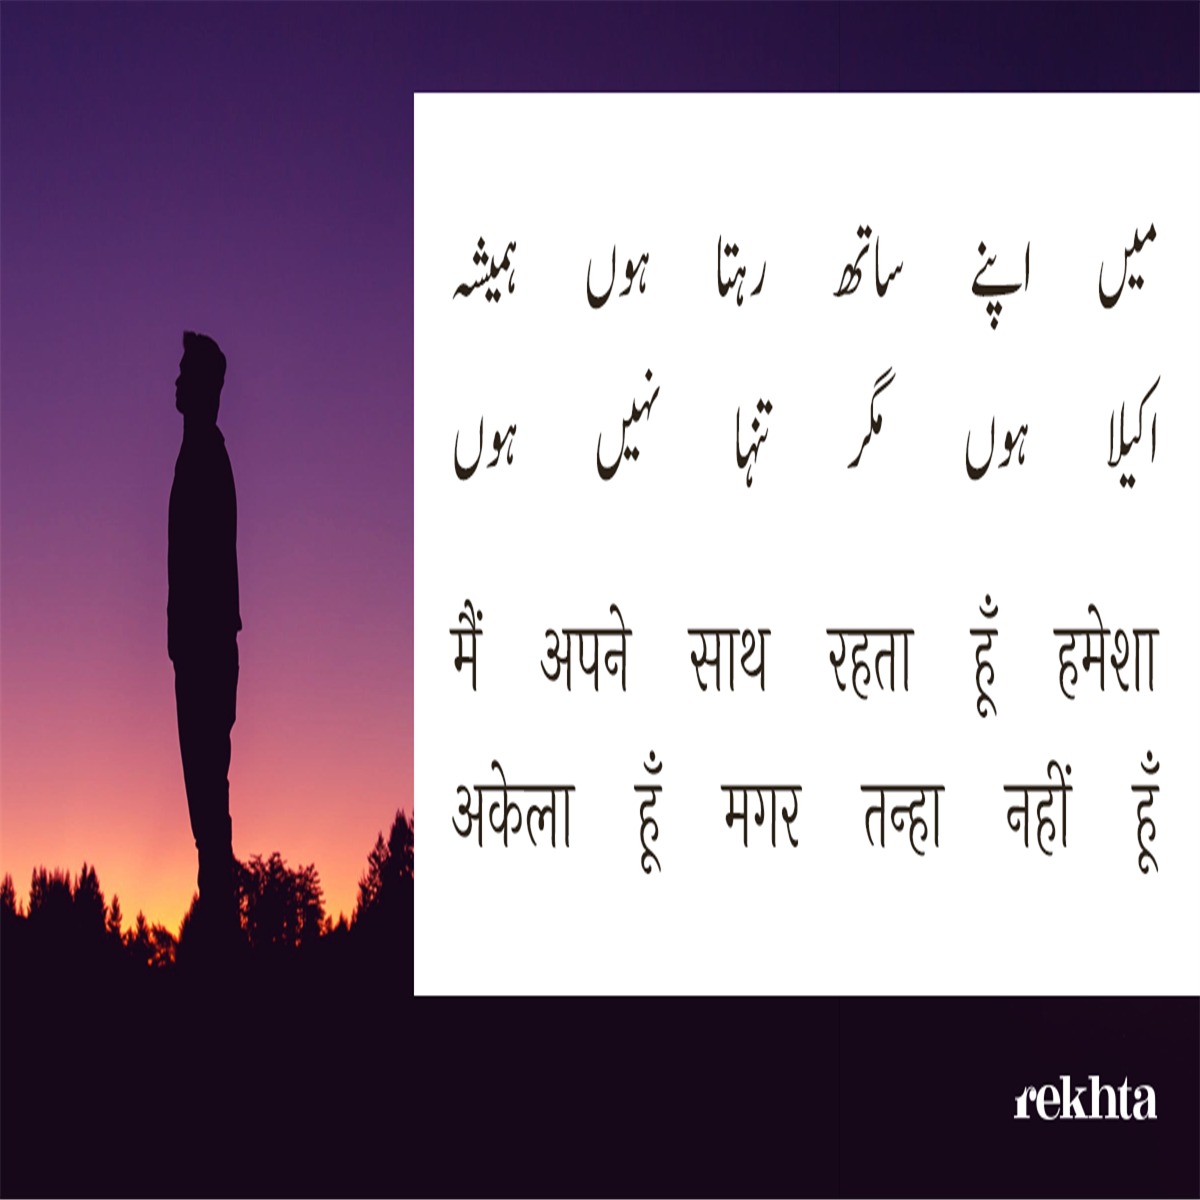 میں اپنے ساتھ رہتا ہوں ہمیشہ
اکیلا ہوں مگر تنہا نہیں ہوں
मैं अपने साथ रहता हूँ हमेशा
अकेला हूँ मगर तन्हा नहीं हूँ
rekhta